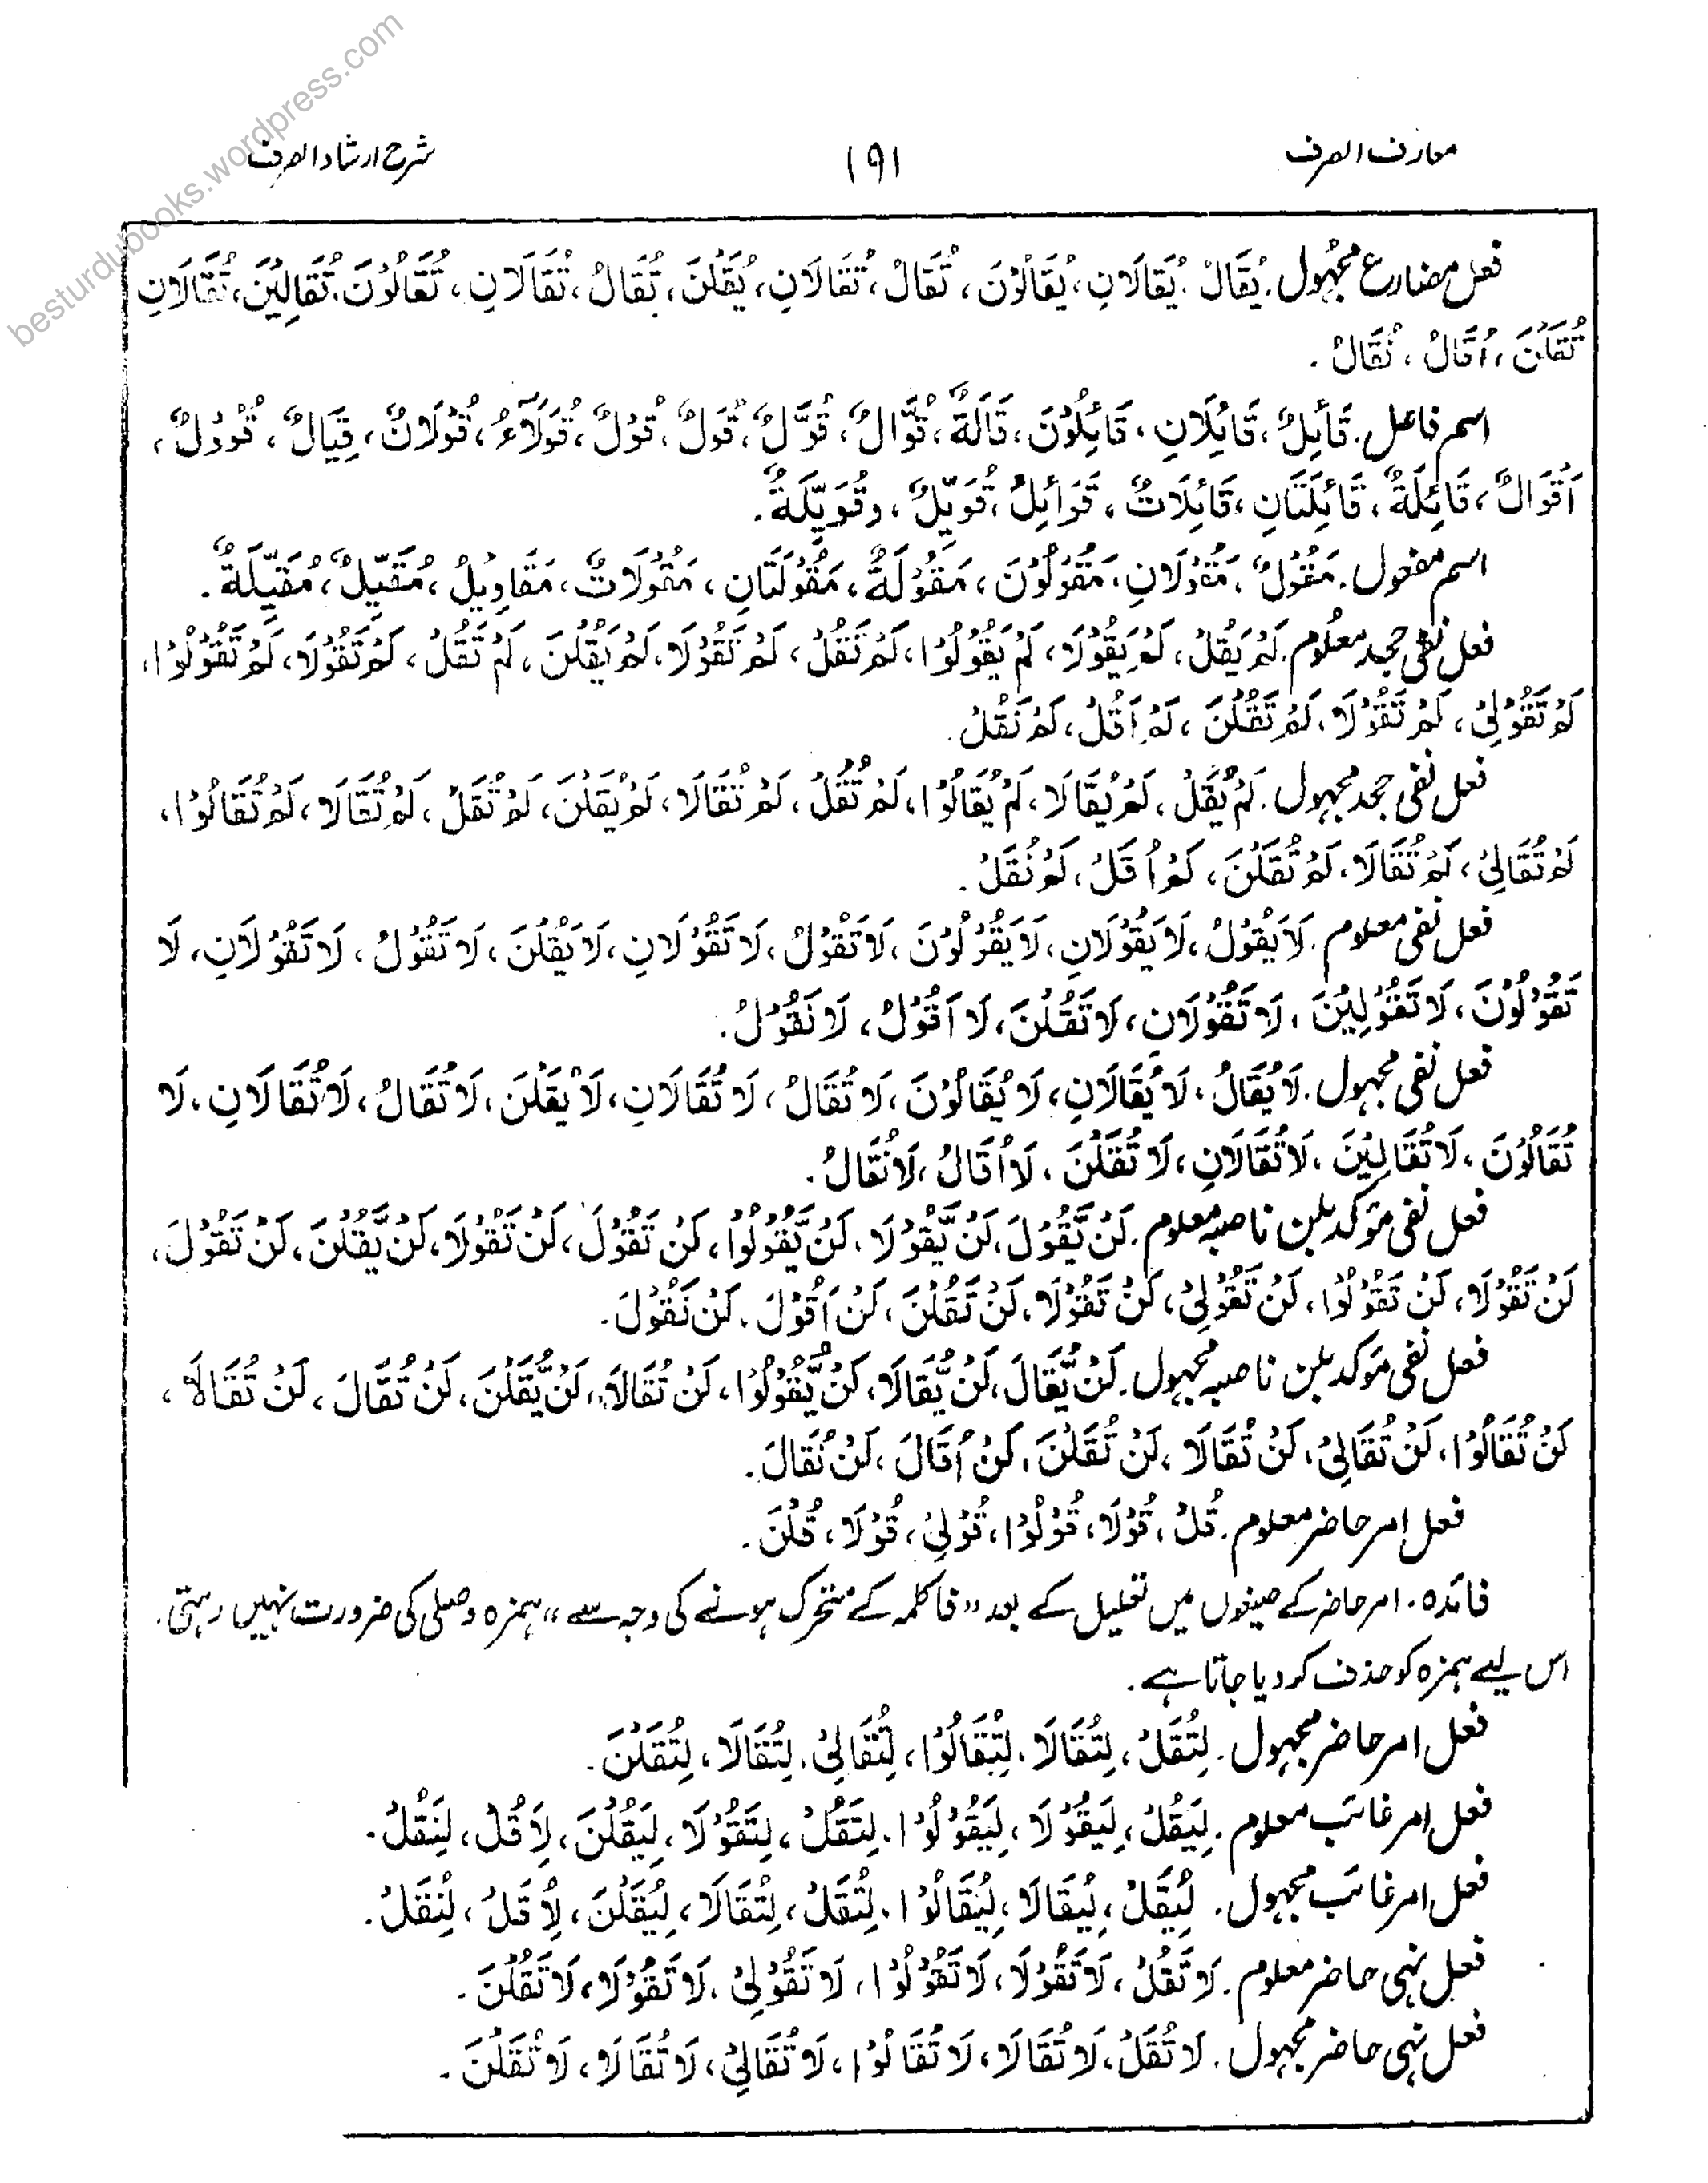 besturdubooks.wordpress.com
معارف الصرف ۱۹۱ شرح ارشاد الصرف
فعل مضارع مجہول. یُقَالُ. یُقَالَانِ، یُقَالُوْنَ، تُقَالُ، تُقَالَانِ، یُقَلْنَ، تُقَالُ، تُقَالَانِ، تُقَالُوْنَ، تُقَالِیْنَ، تُقَالَانِ
تُقَلْنَ، اُقَالُ، نُقَالُ.
اسم فاعل. قَائِلٌ، قَائِلَانِ، قَائِلُوْنَ، قَالَةٌ، قُوَّالٌ، قُوَّلٌ، قُوَلٌ، قُوْلٌ، قُوَلَآءُ، قُوْلَانٌ، قِیَالٌ، قُوُوْلٌ،
اَقْوَالٌ، قَائِلَةٌ، قَائِلَتَانِ، قَائِلَاتٌ، قَوَائِلُ، قُوَیِّلٌ، وقُوَیِّلَةٌ.
اسم مفعول. مَقُوْلٌ، مَقُوْلَانِ، مَقُوْلُوْنَ، مَقُوْلَةٌ، مَقُوْلَتَانِ، مَقُوْلَاتٌ، مَقَاوِیْلُ، مُقَیِّلٌ، مُقَیِّلَةٌ.
فعل نفی جحد معلوم. لَمْ یَقُلْ، لَمْ یَقُوْلَا، لَمْ یَقُوْلُوْا، لَمْ تَقُلْ، لَمْ تَقُوْلَا، لَمْ یَقُلْنَ، لَمْ تَقُلْ، لَمْ تَقُوْلَا، لَمْ تَقُوْلُوْا،
لَمْ تَقُوْلِیْ، لَمْ تَقُوْلَا، لَمْ تَقُلْنَ، لَمْ اَقُلْ، لَمْ نَقُلْ.
فعل نفی جحد مجہول. لَمْ یُقَلْ، لَمْ یُقَالَا، لَمْ یُقَالُوْا، لَمْ تُقَلْ، لَمْ تُقَالَا، لَمْ یُقَلْنَ، لَمْ تُقَلْ، لَمْ تُقَالَا، لَمْ تُقَالُوْا،
لَمْ تُقَالِیْ، لَمْ تُقَالَا، لَمْ تُقَلْنَ، لَمْ اُقَلْ، لَمْ نُقَلْ.
فعل نفی معلوم. لَا یَقُوْلُ، لَا یَقُوْلَانِ، لَا یَقُوْلُوْنَ، لَا تَقُوْلُ، لَا تَقُوْلَانِ، لَا یَقُلْنَ، لَا تَقُوْلُ، لَا تَقُوْلَانِ، لَا
تَقُوْلُوْنَ، لَا تَقُوْلِیْنَ، لَا تَقُوْلَانِ، لَا تَقُلْنَ، لَا اَقُوْلُ، لَا نَقُوْلُ.
فعل نفی مجہول. لَا یُقَالُ، لَا یُقَالَانِ، لَا یُقَالُوْنَ، لَا تُقَالُ، لَا تُقَالَانِ، لَا یُقَلْنَ، لَا تُقَالُ، لَا تُقَالَانِ، لَا
تُقَالُوْنَ، لَا تُقَالِیْنَ، لَا تُقَالَانِ، لَا تُقَلْنَ، لَا اُقَالُ، لَا نُقَالُ.
فعل نفی مؤکد بلن ناصبہ معلوم. لَنْ یَّقُوْلَ، لَنْ یَّقُوْلَا، لَنْ یَّقُوْلُوْا، لَنْ تَقُوْلَ، لَنْ تَقُوْلَا، لَنْ یَّقُلْنَ، لَنْ تَقُوْلَ،
لَنْ تَقُوْلَا، لَنْ تَقُوْلُوْا، لَنْ تَقُوْلِیْ، لَنْ تَقُوْلَا، لَنْ تَقُلْنَ، لَنْ اَقُوْلَ، لَنْ نَقُوْلَ.
فعل نفی مؤکد بلن ناصبہ مجہول. لَنْ یُّقَالَ، لَنْ یُّقَالَا، لَنْ یُّقُوْلُوْا، لَنْ تُقَالَا، لَنْ یُّقَلْنَ، لَنْ تُقَالَ، لَنْ تُقَالَا،
لَنْ تُقَالُوْا، لَنْ تُقَالِیْ، لَنْ تُقَالَا، لَنْ تُقَلْنَ، لَنْ اُقَالَ، لَنْ نُقَالَ.
فعل امر حاضر معلوم. قُلْ، قُوْلَا، قُوْلُوْا، قُوْلِیْ، قُوْلَا، قُلْنَ.
فائدہ. امر حاضر کے صیغوں میں تعلیل کے بعد "فا کلمہ کے متحرک ہونے کی وجہ سے" ہمزہ وصلی کی ضرورت نہیں رہتی.
اس لیے ہمزہ کو حذف کر دیا جاتا ہے.
فعل امر حاضر مجہول. لِتُقَلْ، لِتُقَالَا، لِتُقَالُوْا، لِتُقَالِیْ. لِتُقَالَا، لِتُقَلْنَ.
فعل امر غائب معلوم. لِیَقُلْ، لِیَقُوْلَا، لِیَقُوْلُوْا. لِتَقُلْ، لِتَقُوْلَا، لِیَقُلْنَ، لِاَقُلْ، لِنَقُلْ.
فعل امر غائب مجہول. لِیُقَلْ، لِیُقَالَا، لِیُقَالُوْا. لِتُقَلْ، لِتُقَالَا، لِیُقَلْنَ، لِاُقَلْ، لِنُقَلْ.
فعل نہی حاضر معلوم. لَا تَقُلْ، لَا تَقُوْلَا، لَا تَقُوْلُوْا، لَا تَقُوْلِیْ. لَا تَقُوْلَا، لَا تَقُلْنَ.
فعل نہی حاضر مجہول. لَا تُقَلْ، لَا تُقَالَا، لَا تُقَالُوْا، لَا تُقَالِیْ، لَا تُقَالَا، لَا تُقَلْنَ.